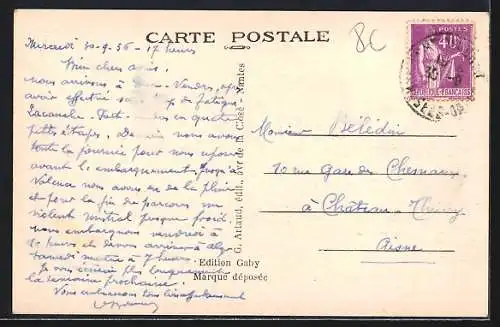 CARTE POSTALE
8C
POSTES
40c
REPUBLIQUE FRANÇAISE
Mercredi 30-9-36 - 17 heures
Mon cher amis,
nous arrivons à Vendres,
avoir effectué sans de fatigue,
Lacanale - Port en quatre
petites étapes. nous avons
toute la journée pour nous reposer
avant l'embarquement. Jusqu'à
Valence nous avons eu de la pluie
et pour la fin de parcours un
violent mistral presque froid.
nous embarquons vendredi à
10 heures et devons arriver à Alger
Samedi matin à 7 heures.
Je vous écrirai plus longuement
la semaine prochaine.
Vous embrassons tous
G. Artaud, édit., rue de la Close - Nantes
Edition Gaby
Marque déposée
Monsieur Bélédin
10 rue gare des Chesneaux
à Château-Thierry
Aisne